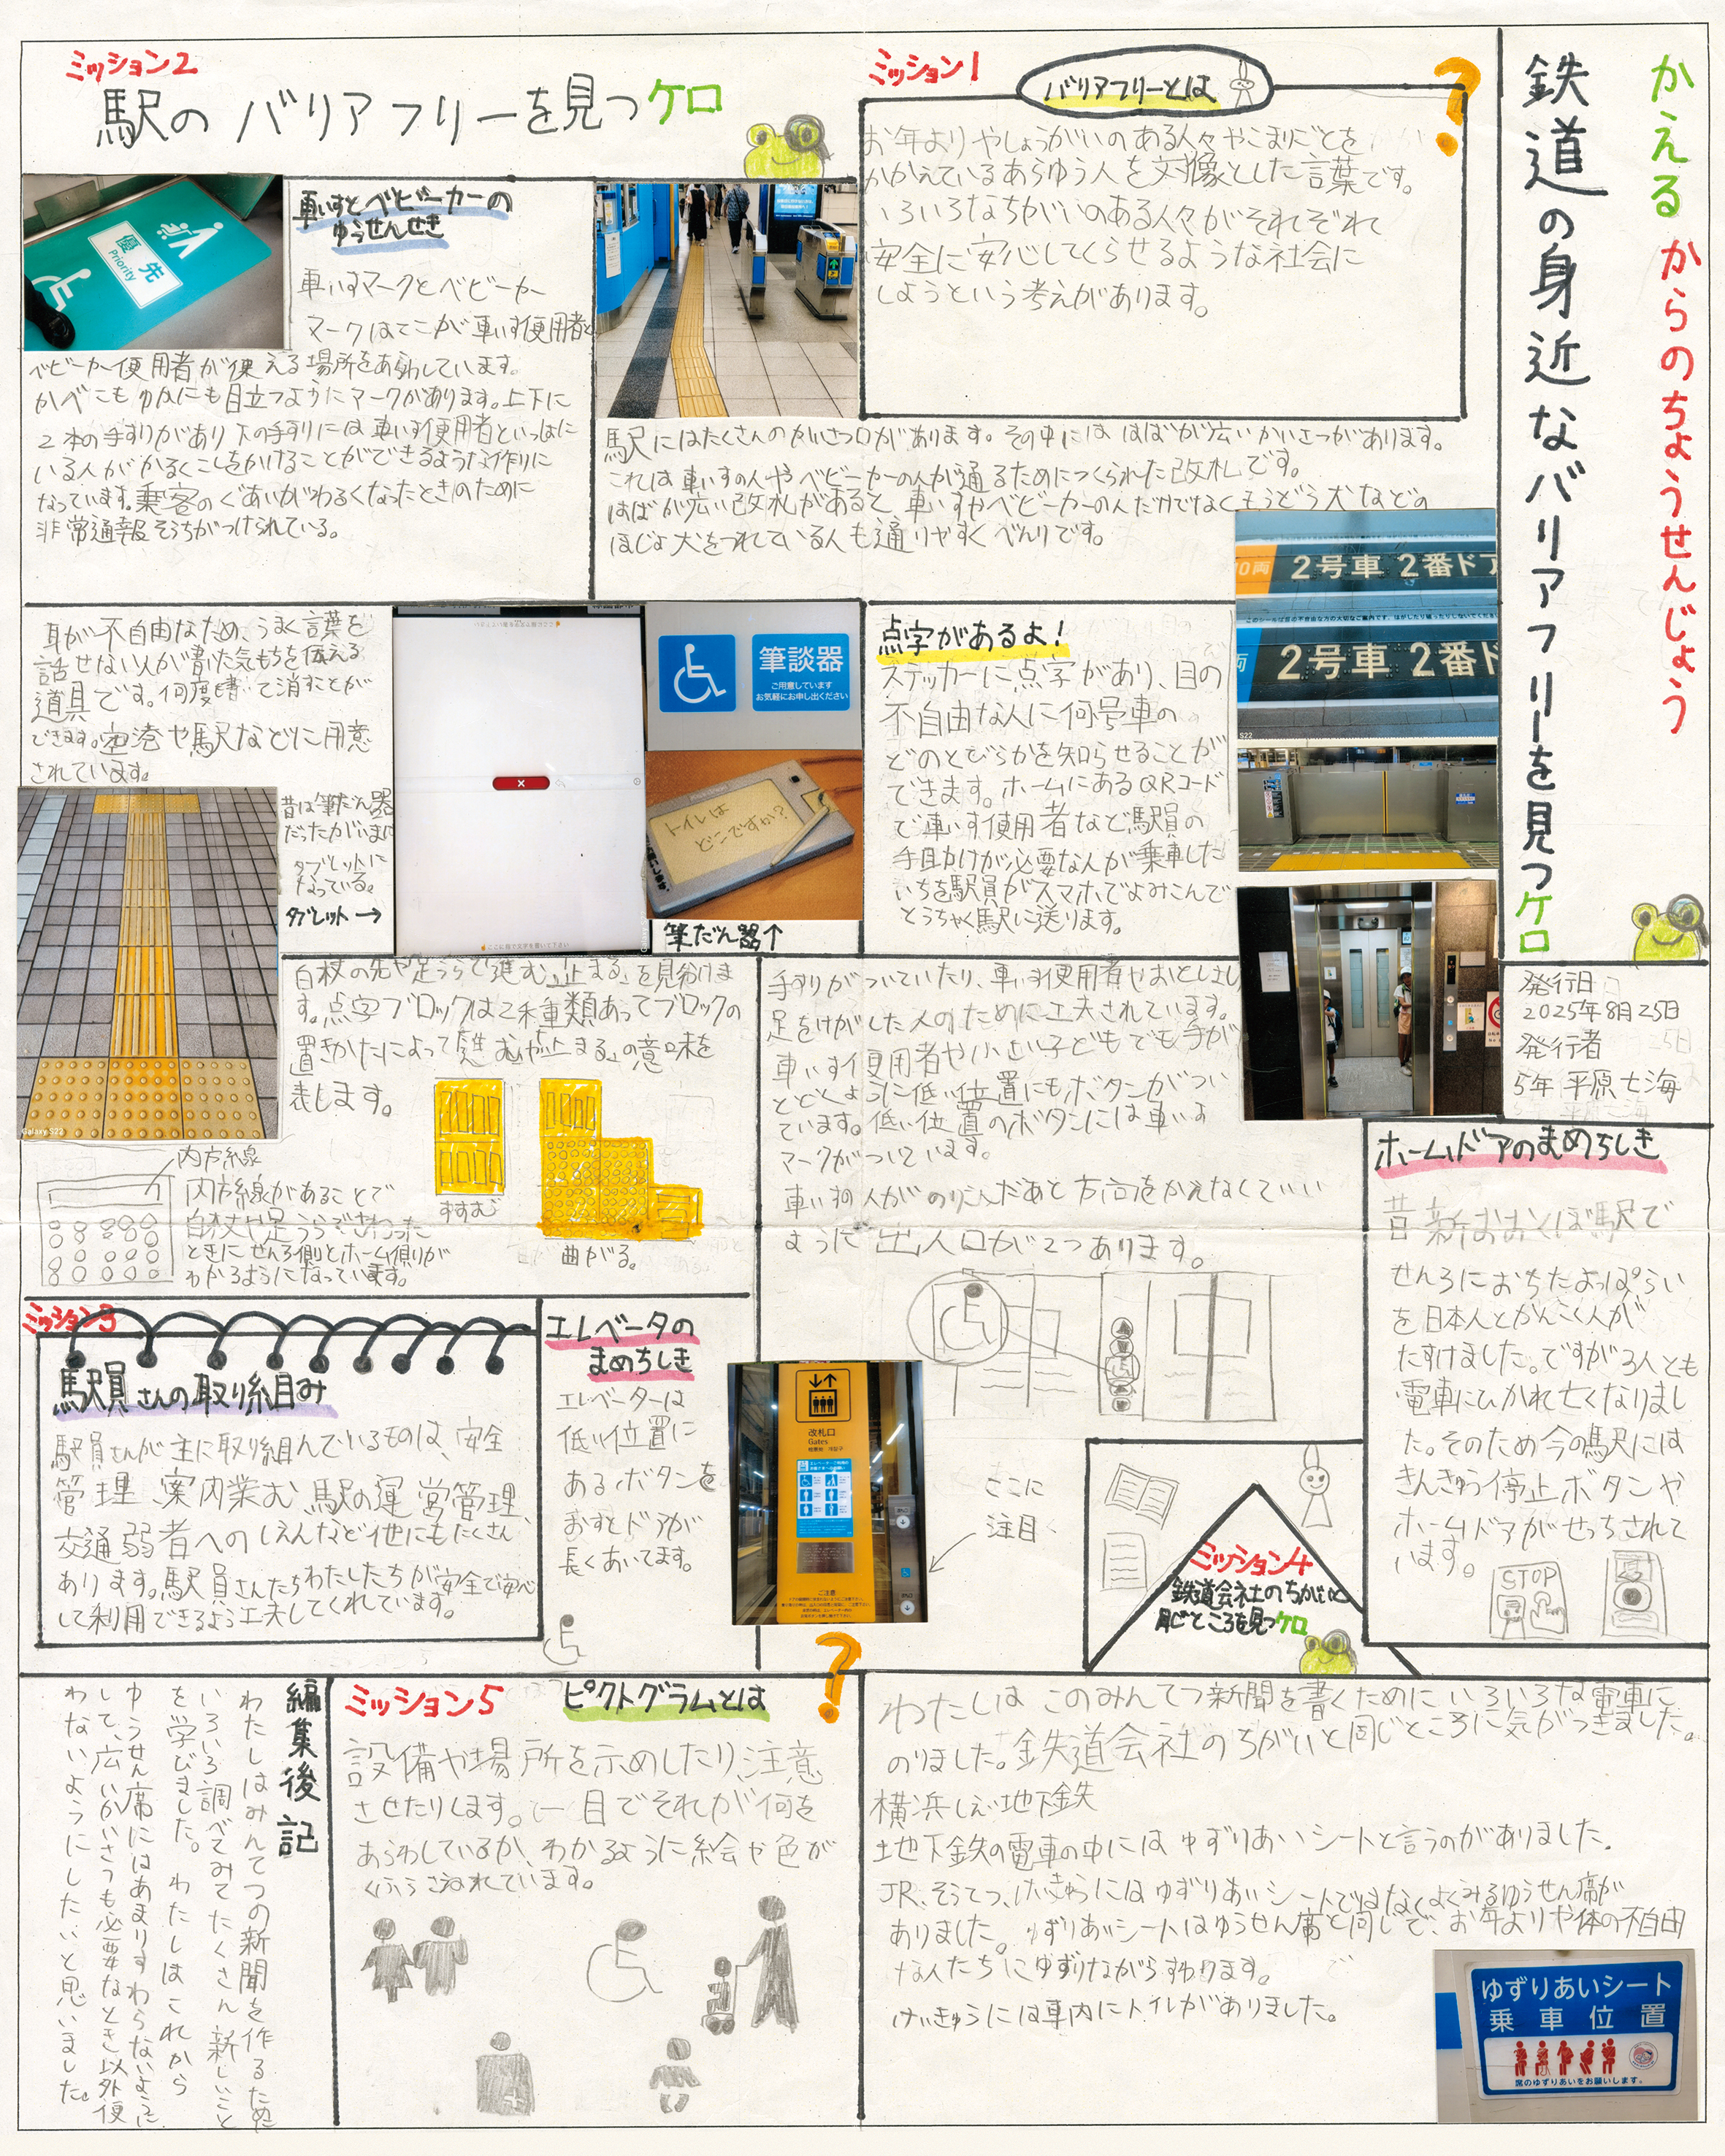 かえるからのちょうせんじょう
鉄道の身近なバリアフリーを見つケロ
発行日
2025年8月25日
発行者
5年 平原七海
ミッション1
バリアフリーとは
?
お年よりやしょうがいのある人々やこまりごとを
かかえているあらゆう人を対像とした言葉です。
いろいろなちがいのある人々がそれぞれ
安全に安心してくらせるような社会に
しようという考えがあります。
ミッション2
駅のバリアフリーを見つケロ
優先
Priority
車いすとベビーカーの
ゆうせんせき
車いすマークとベビーカー
マークはここが車いす使用者と
ベビーカー使用者が使える場所をあらわしています。
かべにもゆかにも目立つようにマークがあります。上下に
2本の手すりがあり下の手すりには車いす使用者といっしょに
いる人がかるくこしをかけることができるような作りに
なっています。乗客のぐあいがわるくなったときのために
非常通報そうちがつけられている。
駅にはたくさんのかいさつ口があります。その中にははばが広いかいさつがあります。
これは車いすの人やベビーカーの人が通るためにつくられた改札です。
はばが広い改札があると、車いすやベビーカーの人だけでなくもうどう犬などの
ほじょ犬をつれている人も通りやすくべんりです。
耳が不自由なため、うまく言葉を
話せない人が書いた気もちを伝える
道具です。何度も書いて消すことが
できます。空港や駅などに用意
されています。
昔は筆だん器
だったがいまは
タブレットに
なっている。
タブレット→
ここに指で文字を書いて下さい
筆談器
ご用意しています
お気軽にお申し出ください
トイレは
どこですか?
筆だん器↑
点字があるよ!
ステッカーに点字があり、目の
不自由な人に何号車の
どのとびらかを知らせることが
できます。ホームにあるQRコード
で車いす使用者など駅員の
手助けが必要な人が乗車した
いちを駅員がスマホでよみこんで
とうちゃく駅に送ります。
10両
2号車 2番ドア
2号車 2番ド
Galaxy S22
白杖の先や足うらで進む、止まる」を見分けま
す。点字ブロックは2種類あってブロックの
置きかたによって「進むや止まる」の意味を
表します。
すすむ
曲がる。
内方線
内方線があることで
白杖や足うらでさわった
ときにせんろ側とホーム側が
わかるようになっています。
手すりがついていたり、車いす使用者やおとしより
足をけがした人のために工夫されています。
車いす使用者や小さい子どもでも手が
とどくように低い位置にもボタンがつい
ています。低い位置のボタンには車いす
マークがついています。
車いすの人がのりこんだあと方向をかえなくていい
ように出入口が2つあります。
エレベータの
まめちしき
エレベーターは
低い位置に
あるボタンを
おすとドアが
長くあいてます。
改札口
Gates
ご注意
ここに
注目
ホームドアのまめちしき
昔新おおくぼ駅で
せんろにおちたよっぱらい
を日本人とかんこく人が
たすけました。ですが3人とも
電車にひかれ亡くなりまし
た。そのため今の駅には
きんきゅう停止ボタンや
ホームドアがせっちされて
います。
STOP
ミッション3
駅員さんの取り組み
駅員さんが主に取り組んでいるものは、安全
管理 案内業む 駅の運営管理、
交通弱者へのしえんなど他にもたくさん
あります。駅員さんたちわたしたちが安全で安心
して利用できるよう工夫してくれています。
ミッション4
鉄道会社のちがいと
同じところを見つケロ
わたしはこのみんてつ新聞を書くためにいろいろな電車に
のりました。鉄道会社のちがいと同じところに気がつきました。
横浜しえい地下鉄
地下鉄の電車の中にはゆずりあいシートと言うのがありました。
JR、そうてつ、けいきゅうにはゆずりあいシートではなくよくみるゆうせん席が
ありました。ゆずりあいシートはゆうせん席と同じで、お年よりや体の不自由
な人たちにゆずりながらすわります。
けいきゅうには車内にトイレがありました。
ゆずりあいシート
乗車位置
席のゆずりあいをお願いします。
ミッション5
ピクトグラムとは
?
設備や場所を示めしたり注意
させたりします。一目でそれが何を
あらわしているか、わかるように絵や色が
くふうされています。
編集後記
わたしはみんてつの新聞を作るため
いろいろ調べてみてたくさん新しいこと
を学びました。わたしはこれから
ゆうせん席にはあまりすわらないように
して、広いかいさつも必要なとき以外使
わないようにしたいと思いました。